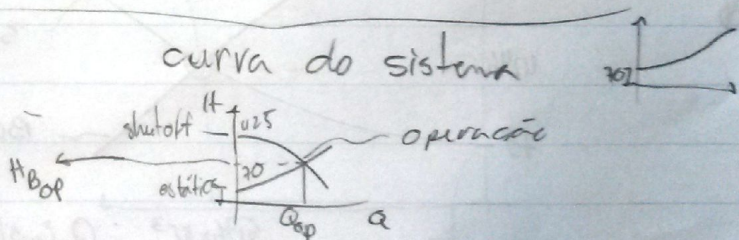 curva do sistema
H
shutoff
operação
H Bop
70
estática
Qop
Q